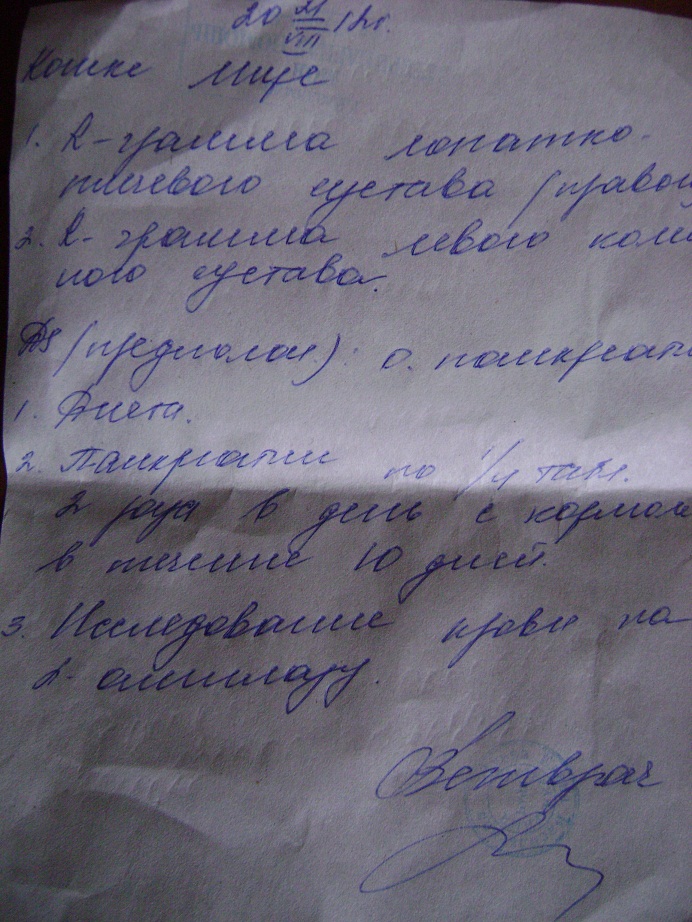 20 21/VIII 12г.
Кошке Мусе
1. R-грамма лопатко-
плечевого сустава (правого
2. R-грамма левого колен
ного сустава.
DS (предполож.): о. панкреати
1. Диета.
2. Панкреатин по 1/4 табл.
2 раза в день с кормом
в течение 10 дней.
3. Исследование крови на
α-амилазу.
Ветврач